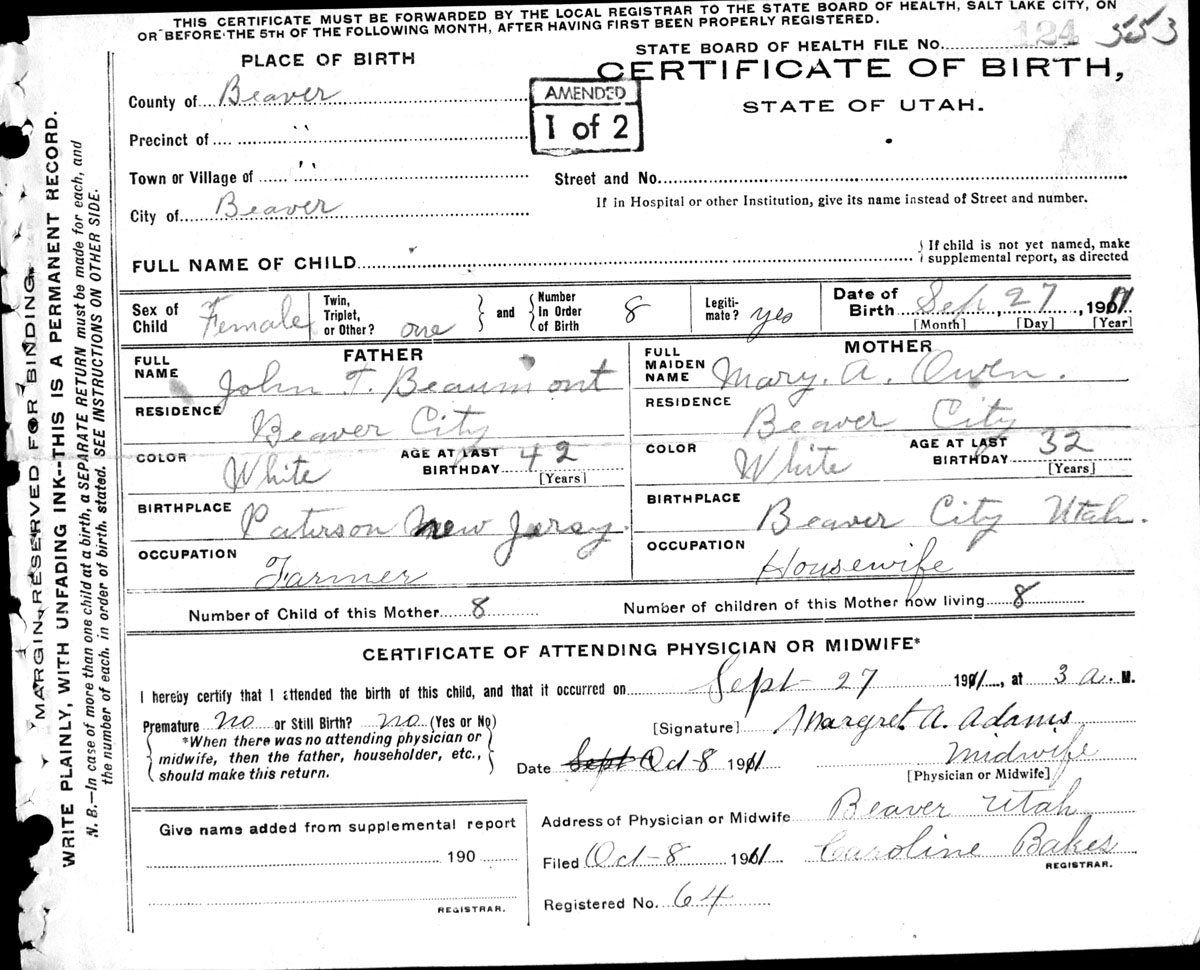 THIS CERTIFICATE MUST BE FORWARDED BY THE LOCAL REGISTRAR TO THE STATE BOARD OF HEALTH, SALT LAKE CITY, ON
OR BEFORE THE 5TH OF THE FOLLOWING MONTH, AFTER HAVING FIRST BEEN PROPERLY REGISTERED.
STATE BOARD OF HEALTH FILE No. 124 553
PLACE OF BIRTH
CERTIFICATE OF BIRTH,
STATE OF UTAH.
AMENDED
1 of 2
County of Beaver
Precinct of "
Town or Village of "
Street and No.
City of Beaver
If in Hospital or other Institution, give its name instead of Street and number.
FULL NAME OF CHILD
{ If child is not yet named, make
supplemental report, as directed
Sex of Child Female
Twin, Triplet, or Other? one
and
Number In Order of Birth 8
Legiti-mate? yes
Date of Birth Sep. 27, 1911
[Month] [Day] [Year]
FATHER
FULL NAME John T. Beaumont
RESIDENCE Beaver City
COLOR White
AGE AT LAST BIRTHDAY 42
[Years]
BIRTHPLACE Paterson New Jersy.
OCCUPATION Farmer
MOTHER
FULL MAIDEN NAME Mary. A. Owen.
RESIDENCE Beaver City
COLOR White
AGE AT LAST BIRTHDAY 32
[Years]
BIRTHPLACE Beaver City Utah.
OCCUPATION Housewife
Number of Child of this Mother 8
Number of children of this Mother now living 8
CERTIFICATE OF ATTENDING PHYSICIAN OR MIDWIFE*
I hereby certify that I attended the birth of this child, and that it occurred on Sept 27 1911, at 3 a. M.
Premature no or Still Birth? no (Yes or No)
*When there was no attending physician or
midwife, then the father, householder, etc.,
should make this return.
[Signature] Margret A. Adams
Midwife
Date Sept Oct-8 1911
[Physician or Midwife]
Address of Physician or Midwife Beaver Utah
Filed Oct-8 1911 Caroline Bakes
REGISTRAR.
Registered No. 64
Give name added from supplemental report
190
REGISTRAR.
MARGIN RESERVED FOR BINDING.
WRITE PLAINLY, WITH UNFADING INK--THIS IS A PERMANENT RECORD.
N. B.—In case of more than one child at a birth, a SEPARATE RETURN must be made for each, and
the number of each, in order of birth, stated. SEE INSTRUCTIONS ON OTHER SIDE.